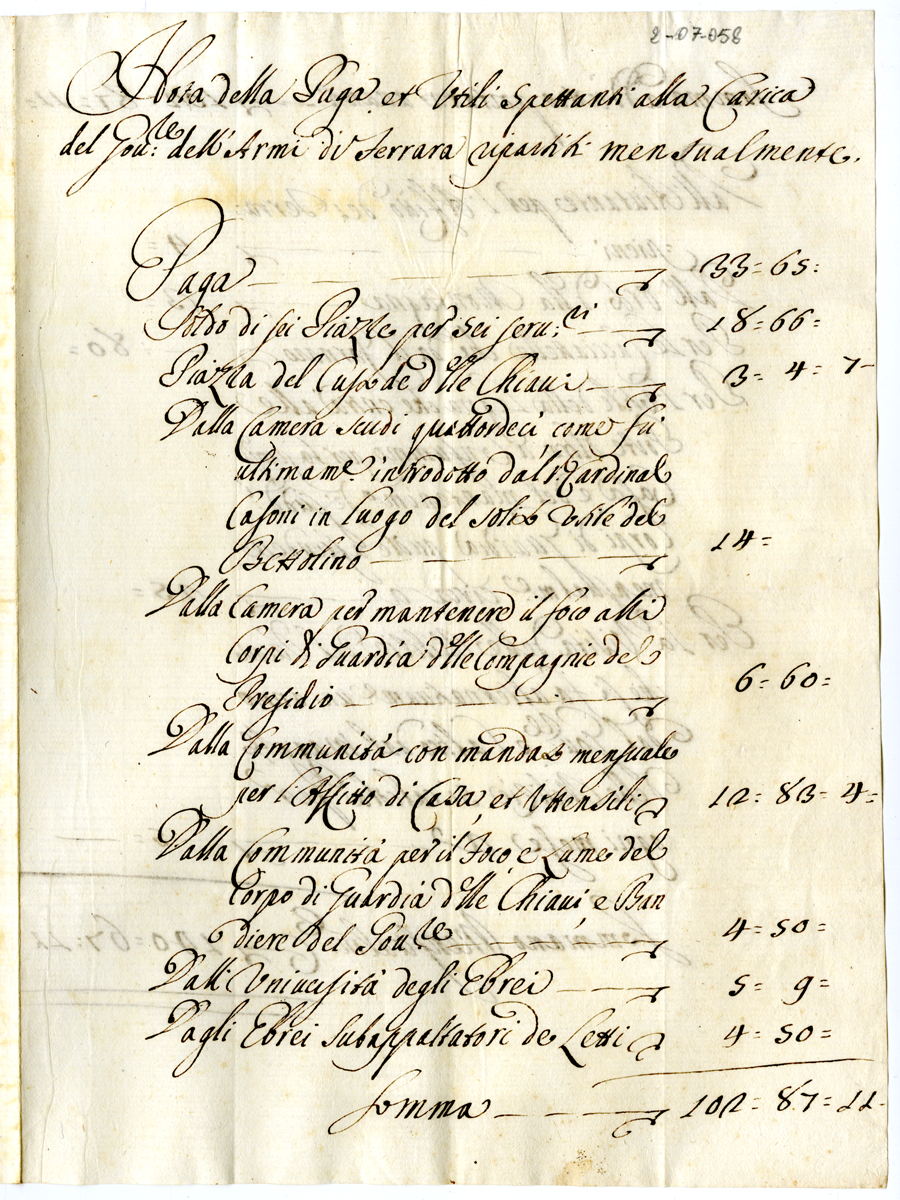 2-07-058
Nota della Paga et Vtili Spettanti alla Carica
del Gou.re dell'Armi di Ferrara ripartiti mensualmente.
Paga 33=65=
Soldo di sei Piazze per sei seru.ri 18=66=
Piazza del Custode d'lle Chiaui 3=4=7
Dalla Camera scudi quattordeci come fù
ultimam.e introdotto dal r. Cardinal
Casoni in luogo del solito Vtile del
Bettolino 14=
Dalla Camera per mantenere il foco alli
Corpi di Guardia d'lle Compagnie del
Presidio 6=60=
Dalla Communità con mandato mensuale
per l'Affitto di Casa, et Vttensili 12=83=4=
Dalla Communità per il Foco e Lume del
Corpo di Guardia d'lle Chiaui e Ban
diere del Gou.re 4=50=
Dall'Vniuersità degli Ebrei 5=9=
Dagli Ebrei Subappaltatori de Letti 4=50=
Somma 102=87=11